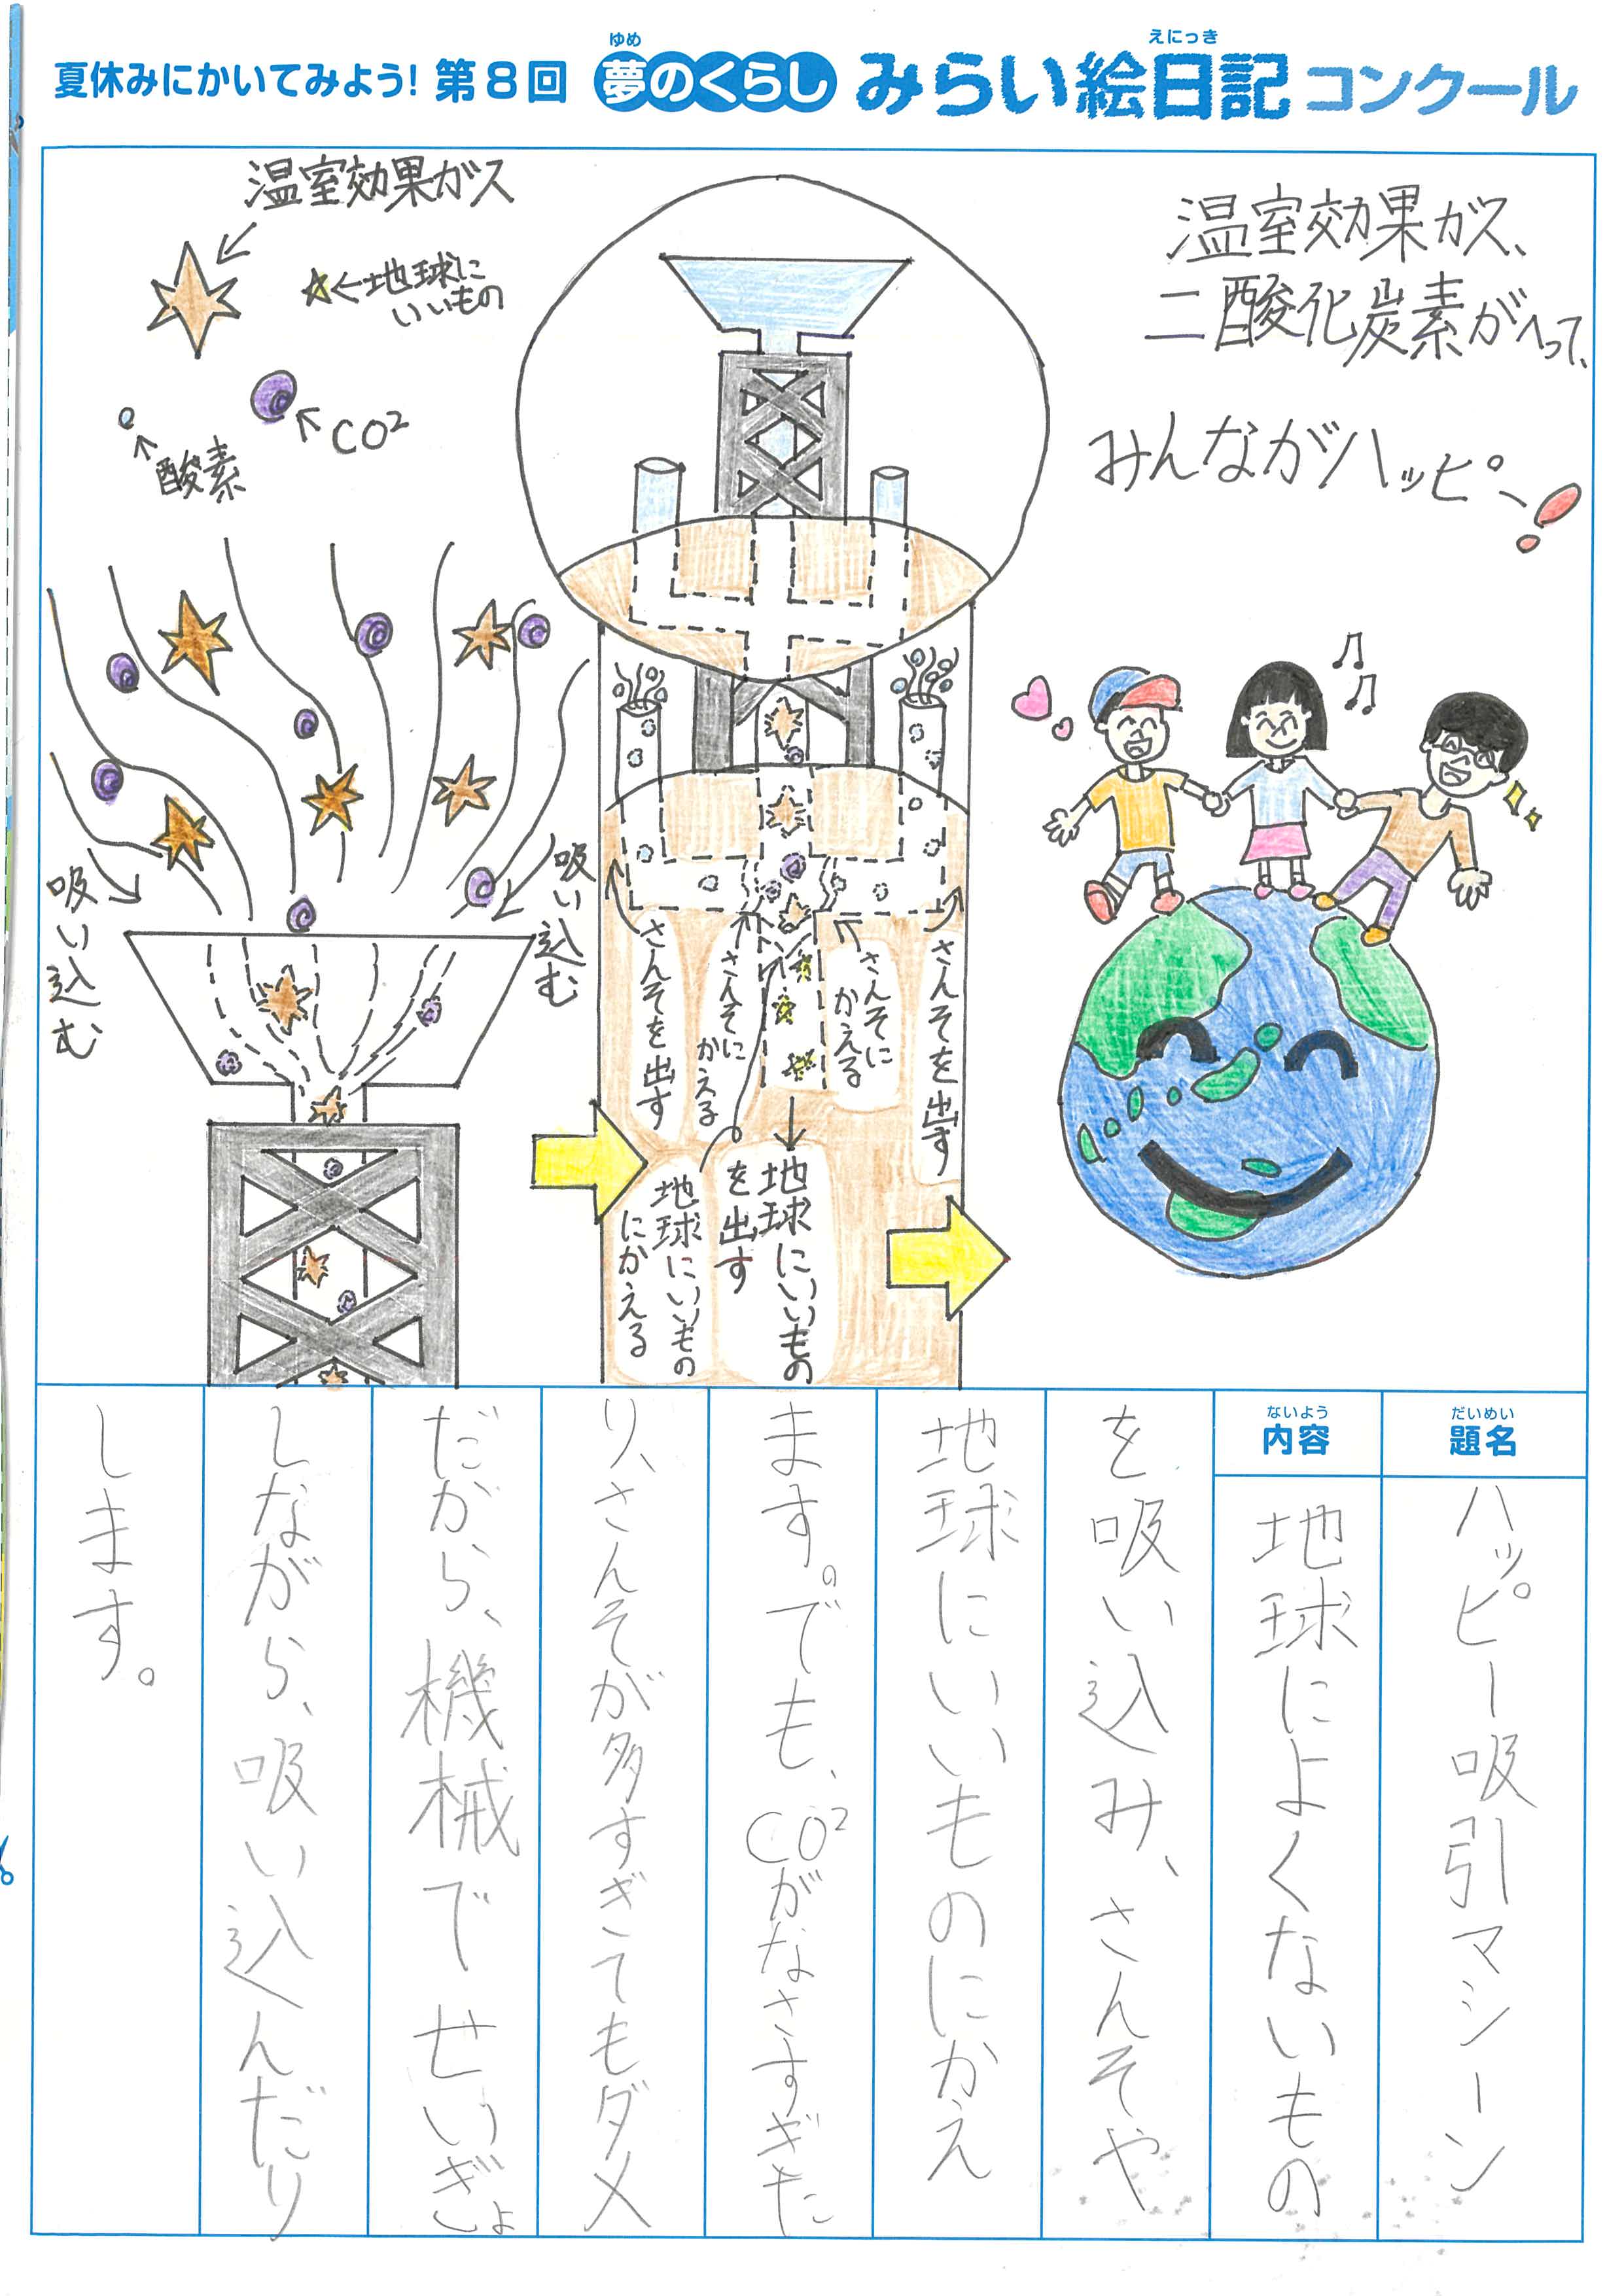 夏休みにかいてみよう! 第8回 夢のくらし みらい絵日記 コンクール
ゆめ
えにっき
温室効果ガス
←地球に
いいもの
CO²
酸素
温室効果ガス、
二酸化炭素がへって、
みんながハッピー!
吸い込む
吸い込む
さんそを出す
さんそに
かえる
さんそに
かえる
さんそを出す
地球にいいもの
にかえる
地球にいいもの
を出す
だいめい
題名
ハッピー吸引マシーン
ないよう
内容
地球によくないもの
を吸い込み、さんそや
地球にいいものにかえ
ます。でも、CO²がなさすぎた
り、さんそが多すぎてもダメ
だから、機械でせいぎょ
しながら、吸い込んだり
します。